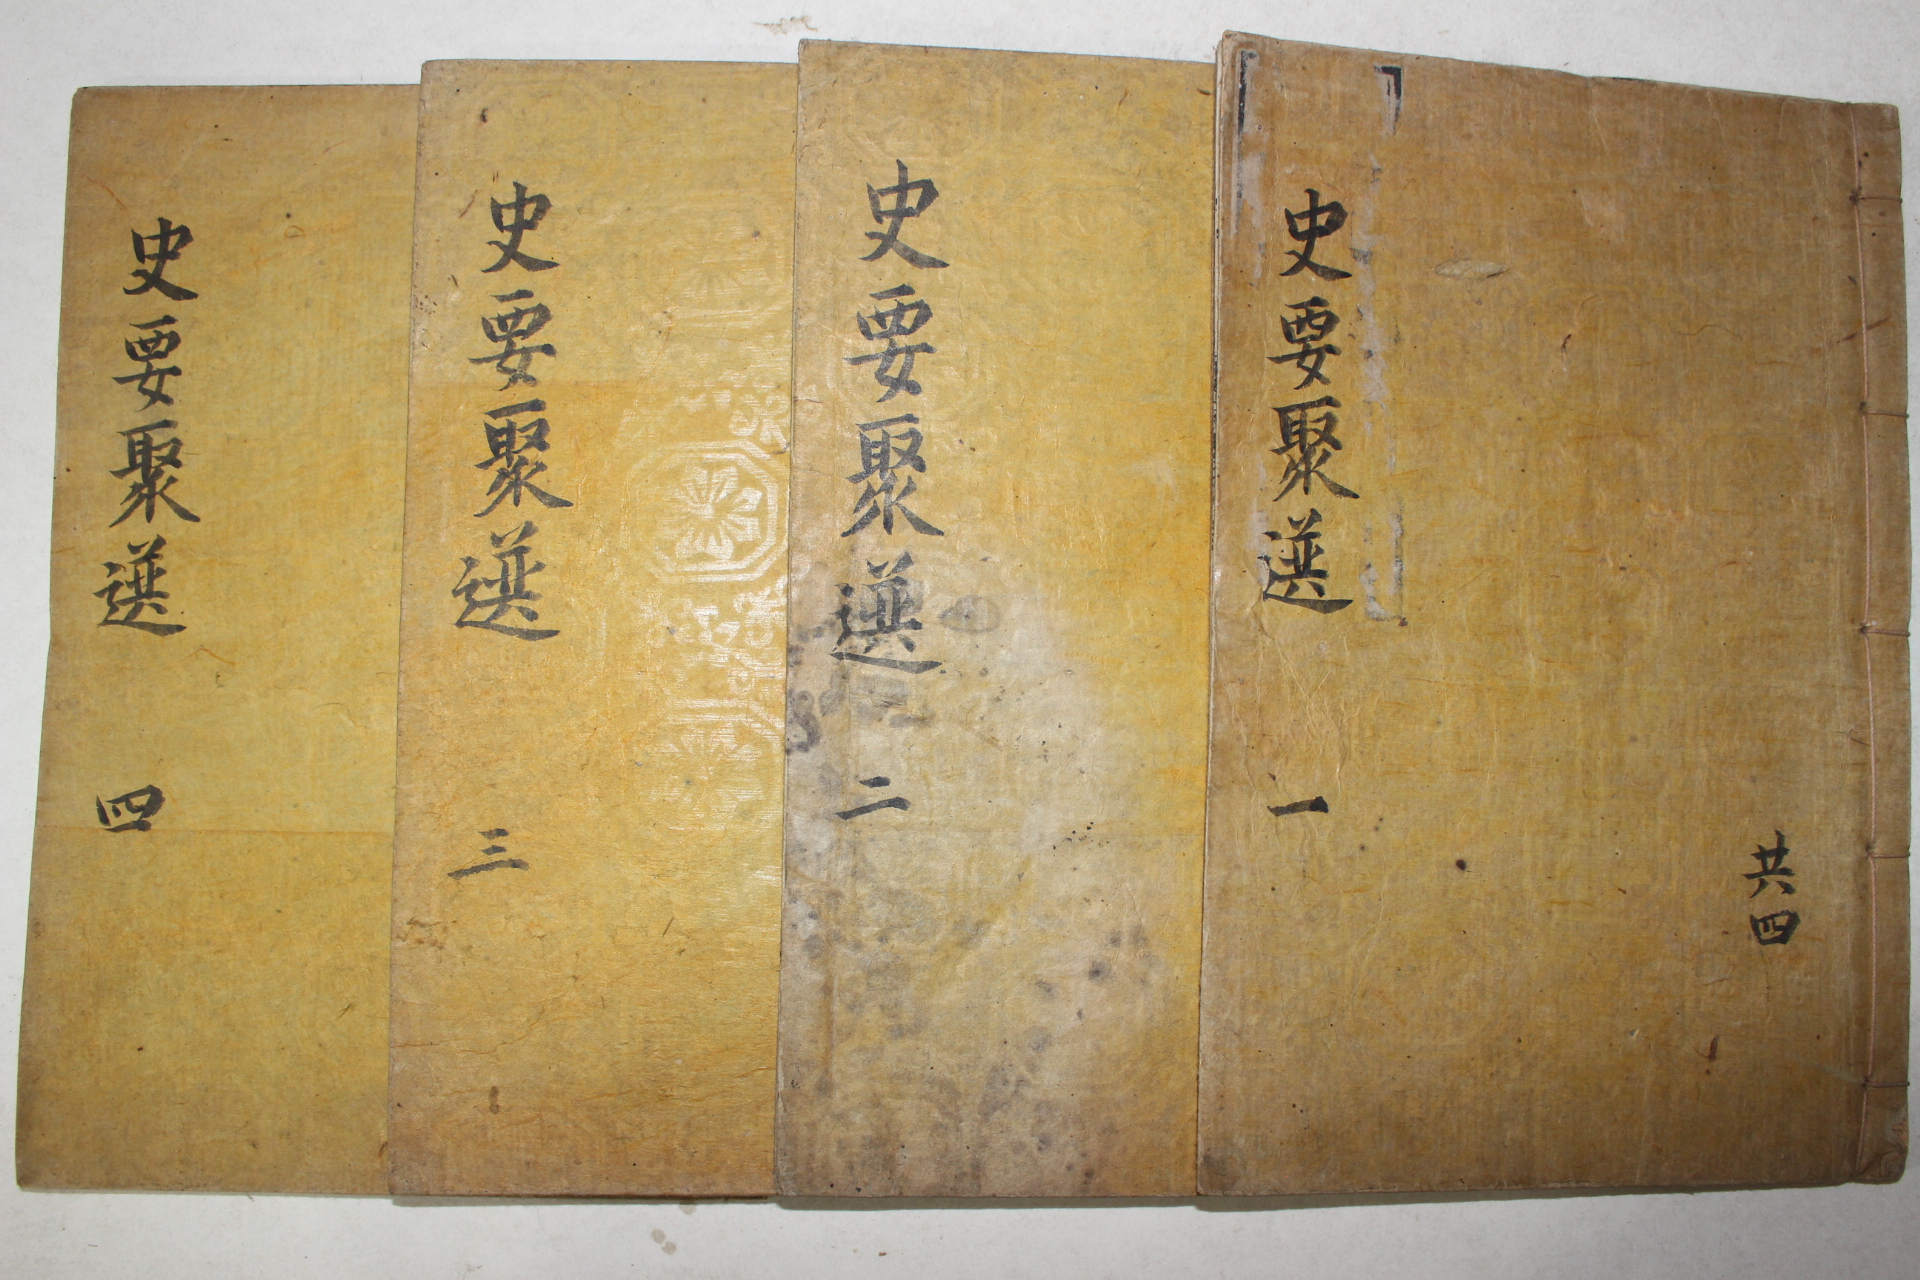 史要聚選 一
共四
史要聚選 二
史要聚選 三
史要聚選 四